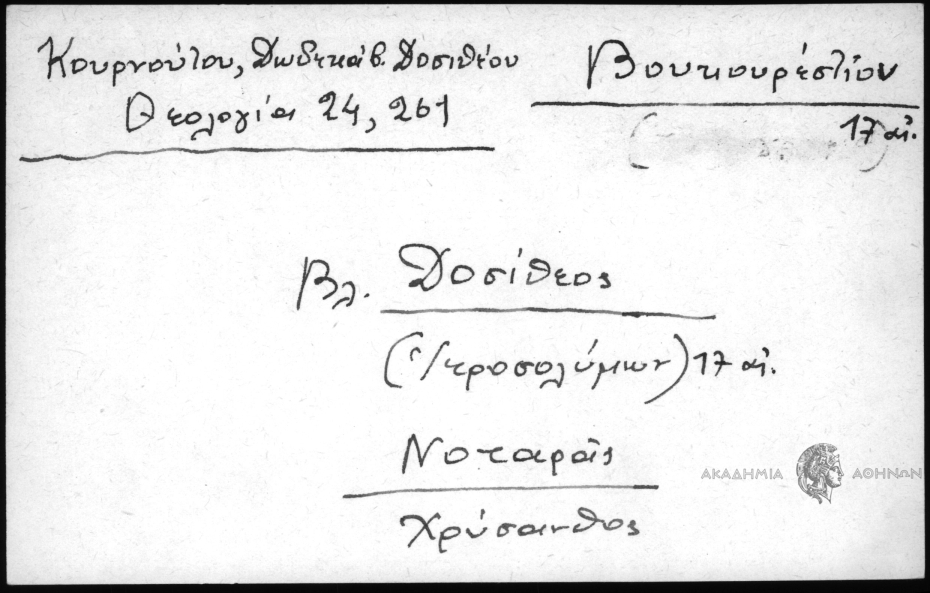 Κουρνούτου, Δωδεκάβ. Δοσιθέου
Θεολογία 24, 261
Βουκουρέστιον
17 αἰ.
Βλ. Δοσίθεος
(Ἱεροσολύμων) 17 αἰ.
Νοταρᾶς
Χρύσανθος
ΑΚΑΔΗΜΙΑ ΑΘΗΝΩΝ